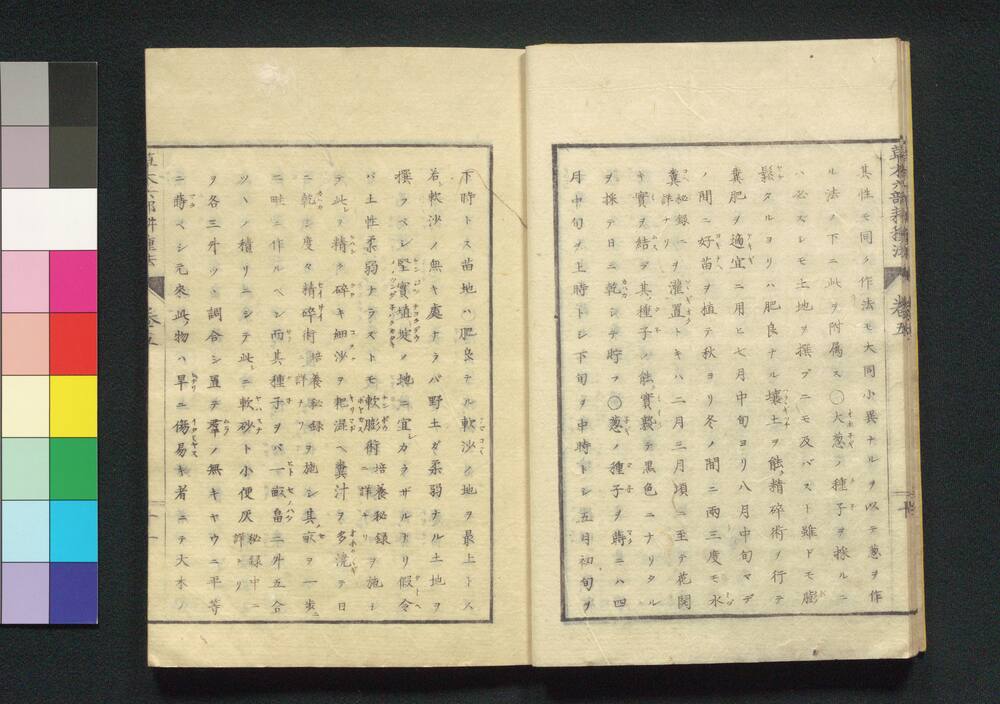 草木六部耕種法 卷五 十
其性モ同ク作法モ大同小異ナルヲ以テ葱ヲ作
ル法ノ下ニ此ヲ附属ス〇大葱ノ種子ヲ採ルニ
ハ必スレモ土地ヲ撰ブニモ及バスト雖ドモ膨
鬆タルヨリハ肥良ナル壤土ヲ蝕精碎術ノ行テ
糞肥ヲ適宜ニ用ヒ七月中旬ヨリ八月中旬マデ
ノ間ニ好苗ヲ植テ秋ヨリ冬ノ間ニ両三度モ水
糞秘録ニ詳ナリヲ灌置トキハ二月三月頃ニ至テ花開
キ實ヲ結ブ其種子ノ蝕實裂テ黒色ニナリタル
ヲ採テ日ニ乾シテ貯フ〇葱ノ種子ヲ蒔ニハ四
月中旬ヲ上時トシ下旬ヲ中時トシ五月初旬ヲ
下時トス苗地ハ肥良ナル軟沙ノ地ヲ最上トス
若軟沙ノ無キ處ナラバ野土ダ柔弱ナル土地ヲ
撰ラベシ堅實埴埞ノ地ニ宜カラザルナリ假令
バ土性柔弱ナラストモ軟膨術培養秘録ニ詳ナリヲ施シ
テ此ヲ精ク碎キ細沙ヲ耙混ヘ糞汁ヲ多澆テ日
ニ乾シ度々精碎術培養秘録ニ詳ナリヲ施シ其畝ヲ一歩
ニ畦ニ作ルベシ而其種子ヲバ一畝畠ニ外五合
ツヽノ積リニシテ此ニ軟砂ト小便灰秘録中ニ詳ナリ
ヲ各三外ツヽ調合シ置テ羣ノ無キヤウニ平等
ニ蒔ベシ元來此物ハ旱ニ傷易キ者ニテ大木ノ
草木六部耕種法 卷五 十一